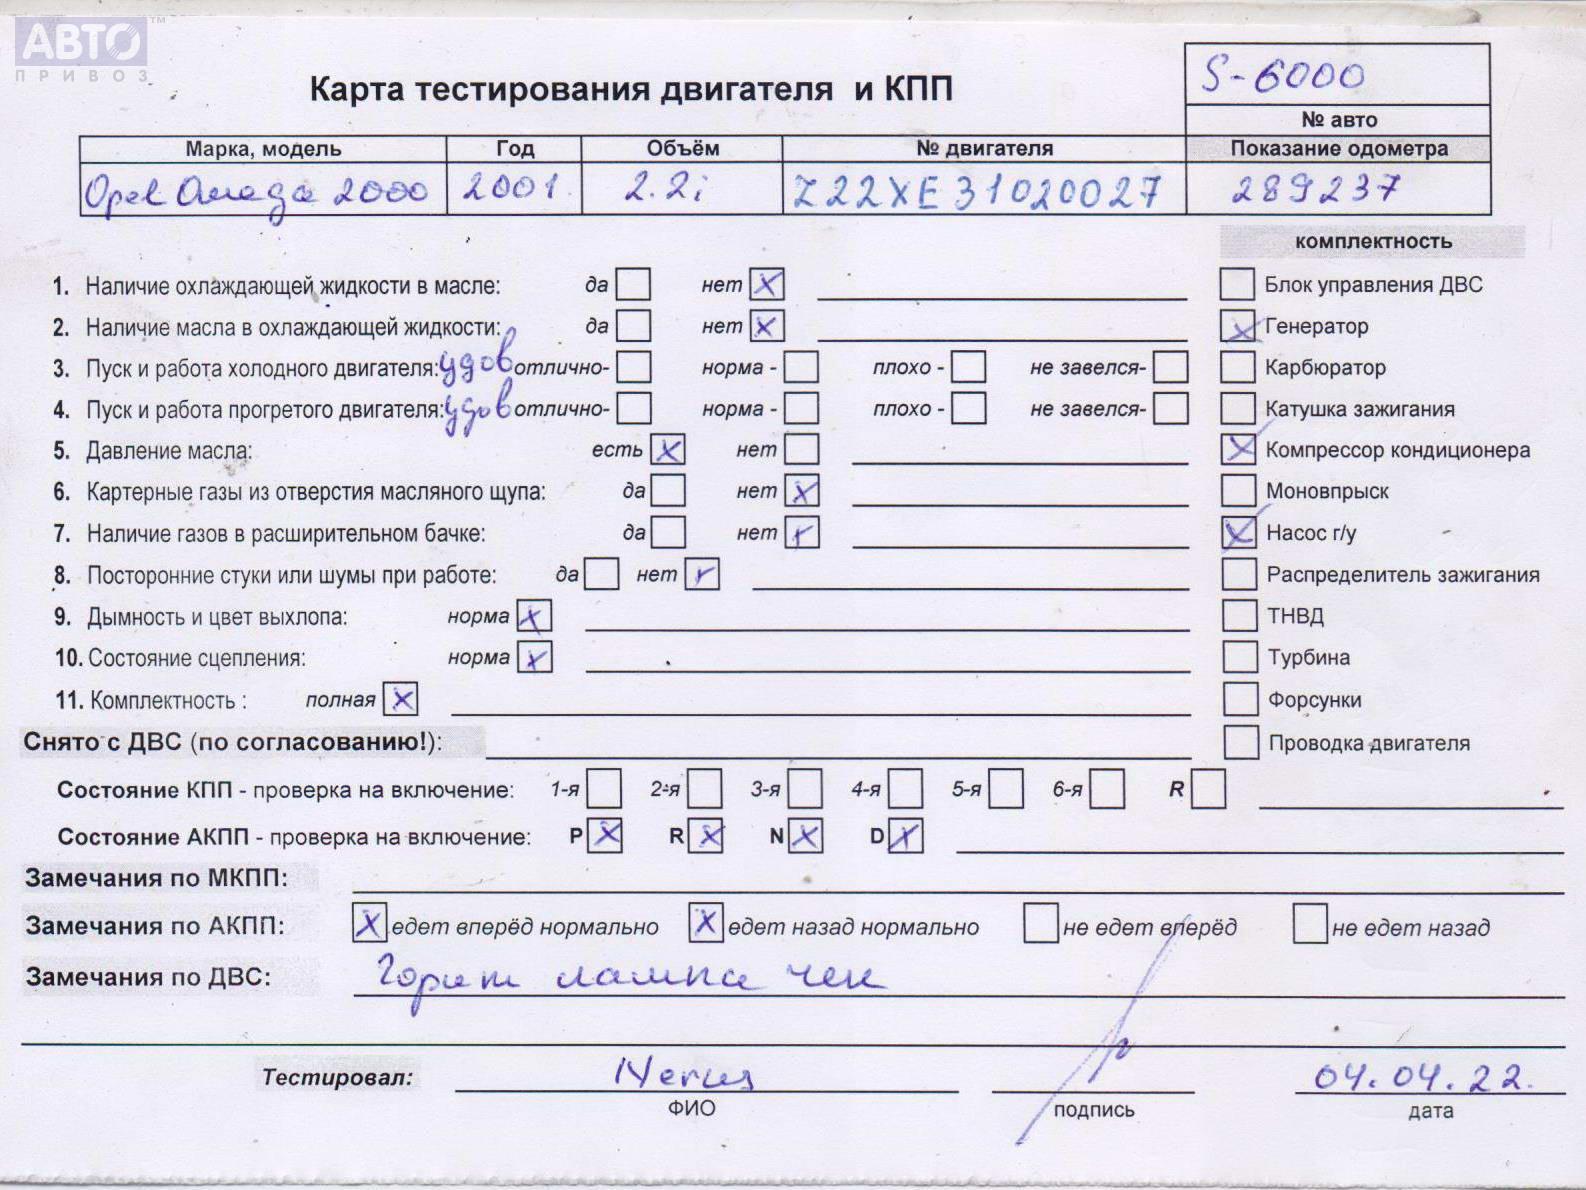 АВТО™
ПРИВОЗ
S-6000
Карта тестирования двигателя и КПП
№ авто
Марка, модель Год Объём № двигателя Показание одометра
Opel Omega 2000 2001 2.2i Z22XE31020027 289237
комплектность
1. Наличие охлаждающей жидкости в масле: да нет X Блок управления ДВС
2. Наличие масла в охлаждающей жидкости: да нет X X Генератор
3. Пуск и работа холодного двигателя: удов отлично- норма - плохо - не завелся- Карбюратор
4. Пуск и работа прогретого двигателя: удов отлично- норма - плохо - не завелся- Катушка зажигания
5. Давление масла: есть X нет X Компрессор кондиционера
6. Картерные газы из отверстия масляного щупа: да нет X Моновпрыск
7. Наличие газов в расширительном бачке: да нет X X Насос г/у
8. Посторонние стуки или шумы при работе: да нет X Распределитель зажигания
9. Дымность и цвет выхлопа: норма X ТНВД
10. Состояние сцепления: норма X Турбина
11. Комплектность : полная X Форсунки
Снято с ДВС (по согласованию!): Проводка двигателя
Состояние КПП - проверка на включение: 1-я 2-я 3-я 4-я 5-я 6-я R
Состояние АКПП - проверка на включение: P X R X N X D X
Замечания по МКПП:
Замечания по АКПП: X едет вперёд нормально X едет назад нормально не едет вперёд не едет назад
Замечания по ДВС: Горит лампа чек
Тестировал: 04.04.22.
ФИО подпись дата